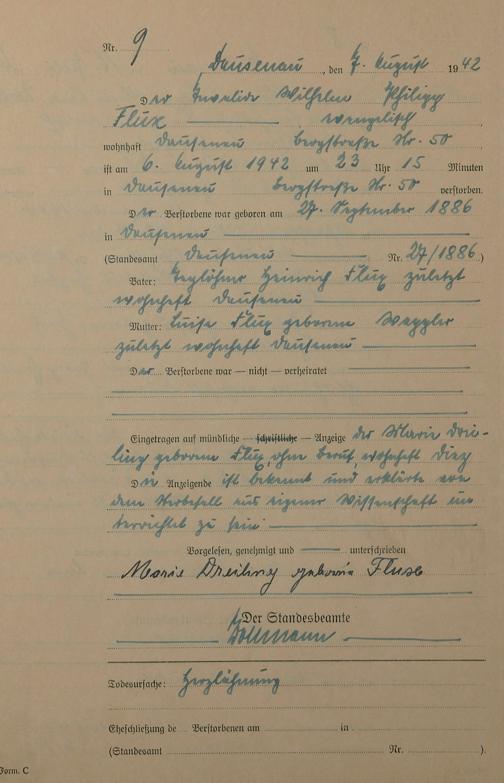 Nr. 9
Dausenau, den 7. August 1942
Der Invalide Wilhelm Philipp
Flux evangelisch
wohnhaft Dausenau Bergstraße Nr. 50
ist am 6. August 1942 um 23 Uhr 15 Minuten
in Dausenau Bergstraße Nr. 50 verstorben.
Der Verstorbene war geboren am 27. September 1886
in Dausenau
(Standesamt Dausenau Nr. 27/1886.)
Vater: Taglöhner Heinrich Flux zuletzt
wohnhaft Dausenau
Mutter: Luise Flux geborene
zuletzt wohnhaft Dausenau
Der Verstorbene war — nicht — verheiratet
Eingetragen auf mündliche — schriftliche — Anzeige der Marie Drei-
ling geborene Flux, ohne Beruf, wohnhaft Diez
Die Anzeigende ist bekannt und erklärte von
dem Sterbefall aus eigener Wissenschaft un-
terrichtet zu sein
Vorgelesen, genehmigt und unterschrieben
Marie Dreiling geborene Flux
Der Standesbeamte
Todesursache: Herzlähmung
Eheschließung de Verstorbenen am in
(Standesamt Nr. ).
Form. C